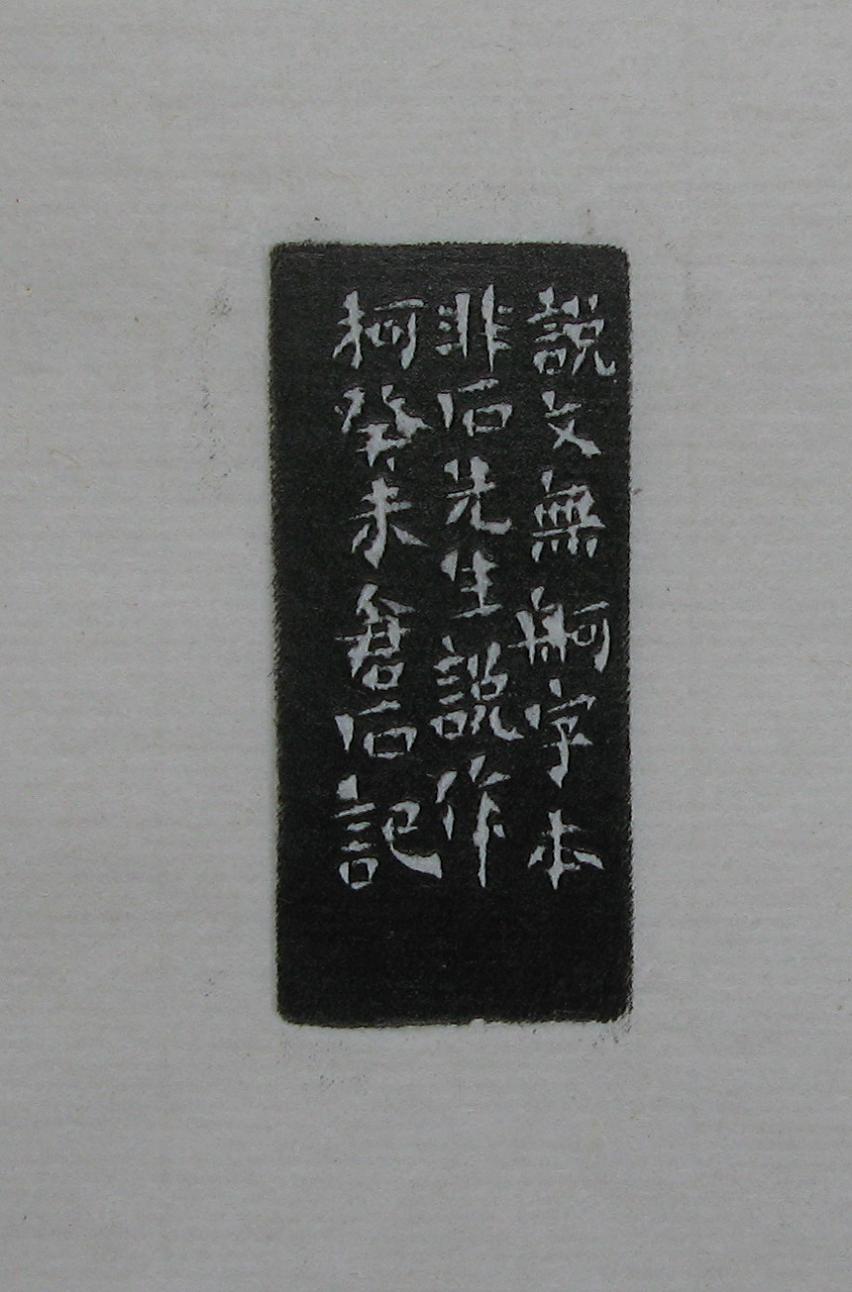 説文無舸字本
非石先生説作
柯癸未倉石記